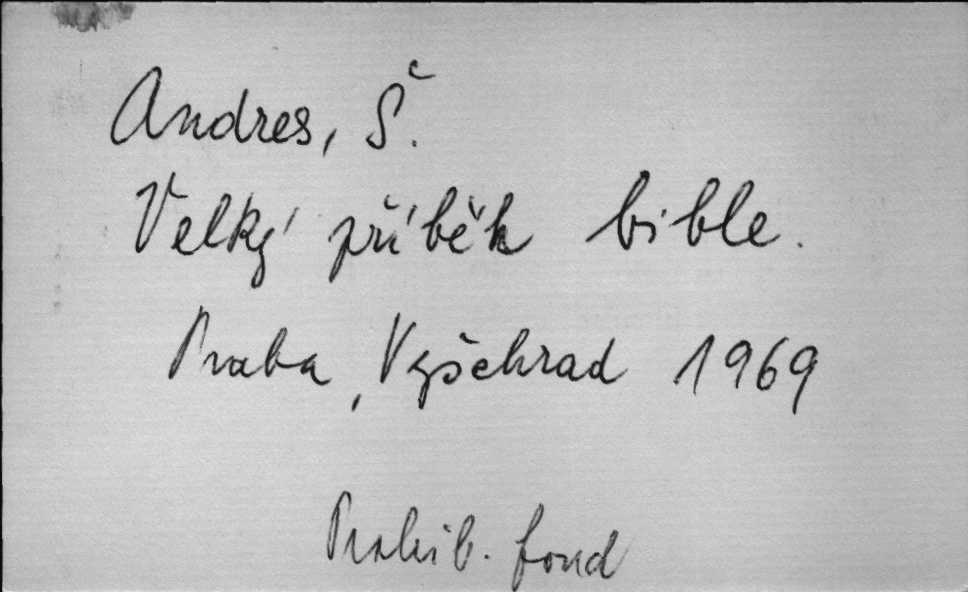 Andres, Š.
Velký příběh bible.
Praha, Vyšehrad 1969
Prohib. fond